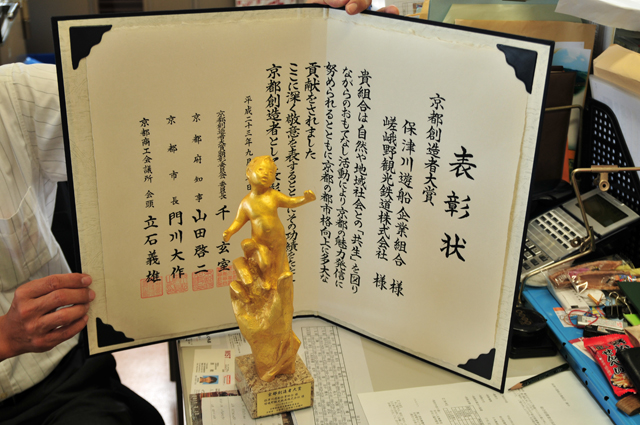 表彰状
京都創造者大賞
保津川遊船企業組合 様
嵯峨野観光鉄道株式会社 様
貴組合は自然や地域社会との「共生」を図り
ながらのおもてなし活動により京都の魅力発信に
努められるとともに京都の都市格向上に多大な
貢献をされました
ここに深く敬意を表するとともにその功績を
京都創造者として
平成二十三年九月
千 玄室
京都府知事 山田啓二
京都市長 門川大作
京都商工会議所 会頭 立石義雄